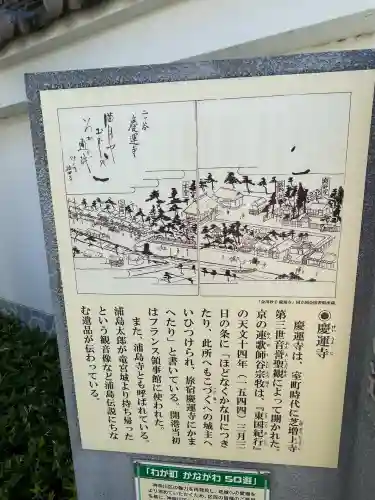 二ツ谷
慶運寺
「金川砂子慶運寺」国立国会図書館所蔵
◉慶運寺
慶運寺は、室町時代に芝増上寺
第三世音誉聖観によって開かれた。
京の連歌師谷宗牧は、『東国紀行』
の天文十四年（一五四四）三月三
日の条に「ほどなくかな川につき
たり、此所へもこづくへの城主へ
いひつけられ、旅宿慶運寺にかま
へたり」と書いている。開港当初
はフランス領事館に使われた。
また、浦島寺とも呼ばれている。
浦島太郎が竜宮城より持ち帰った
という観音像など浦島伝説にちな
む遺品が伝わっている。
「わが町 かながわ 50選」